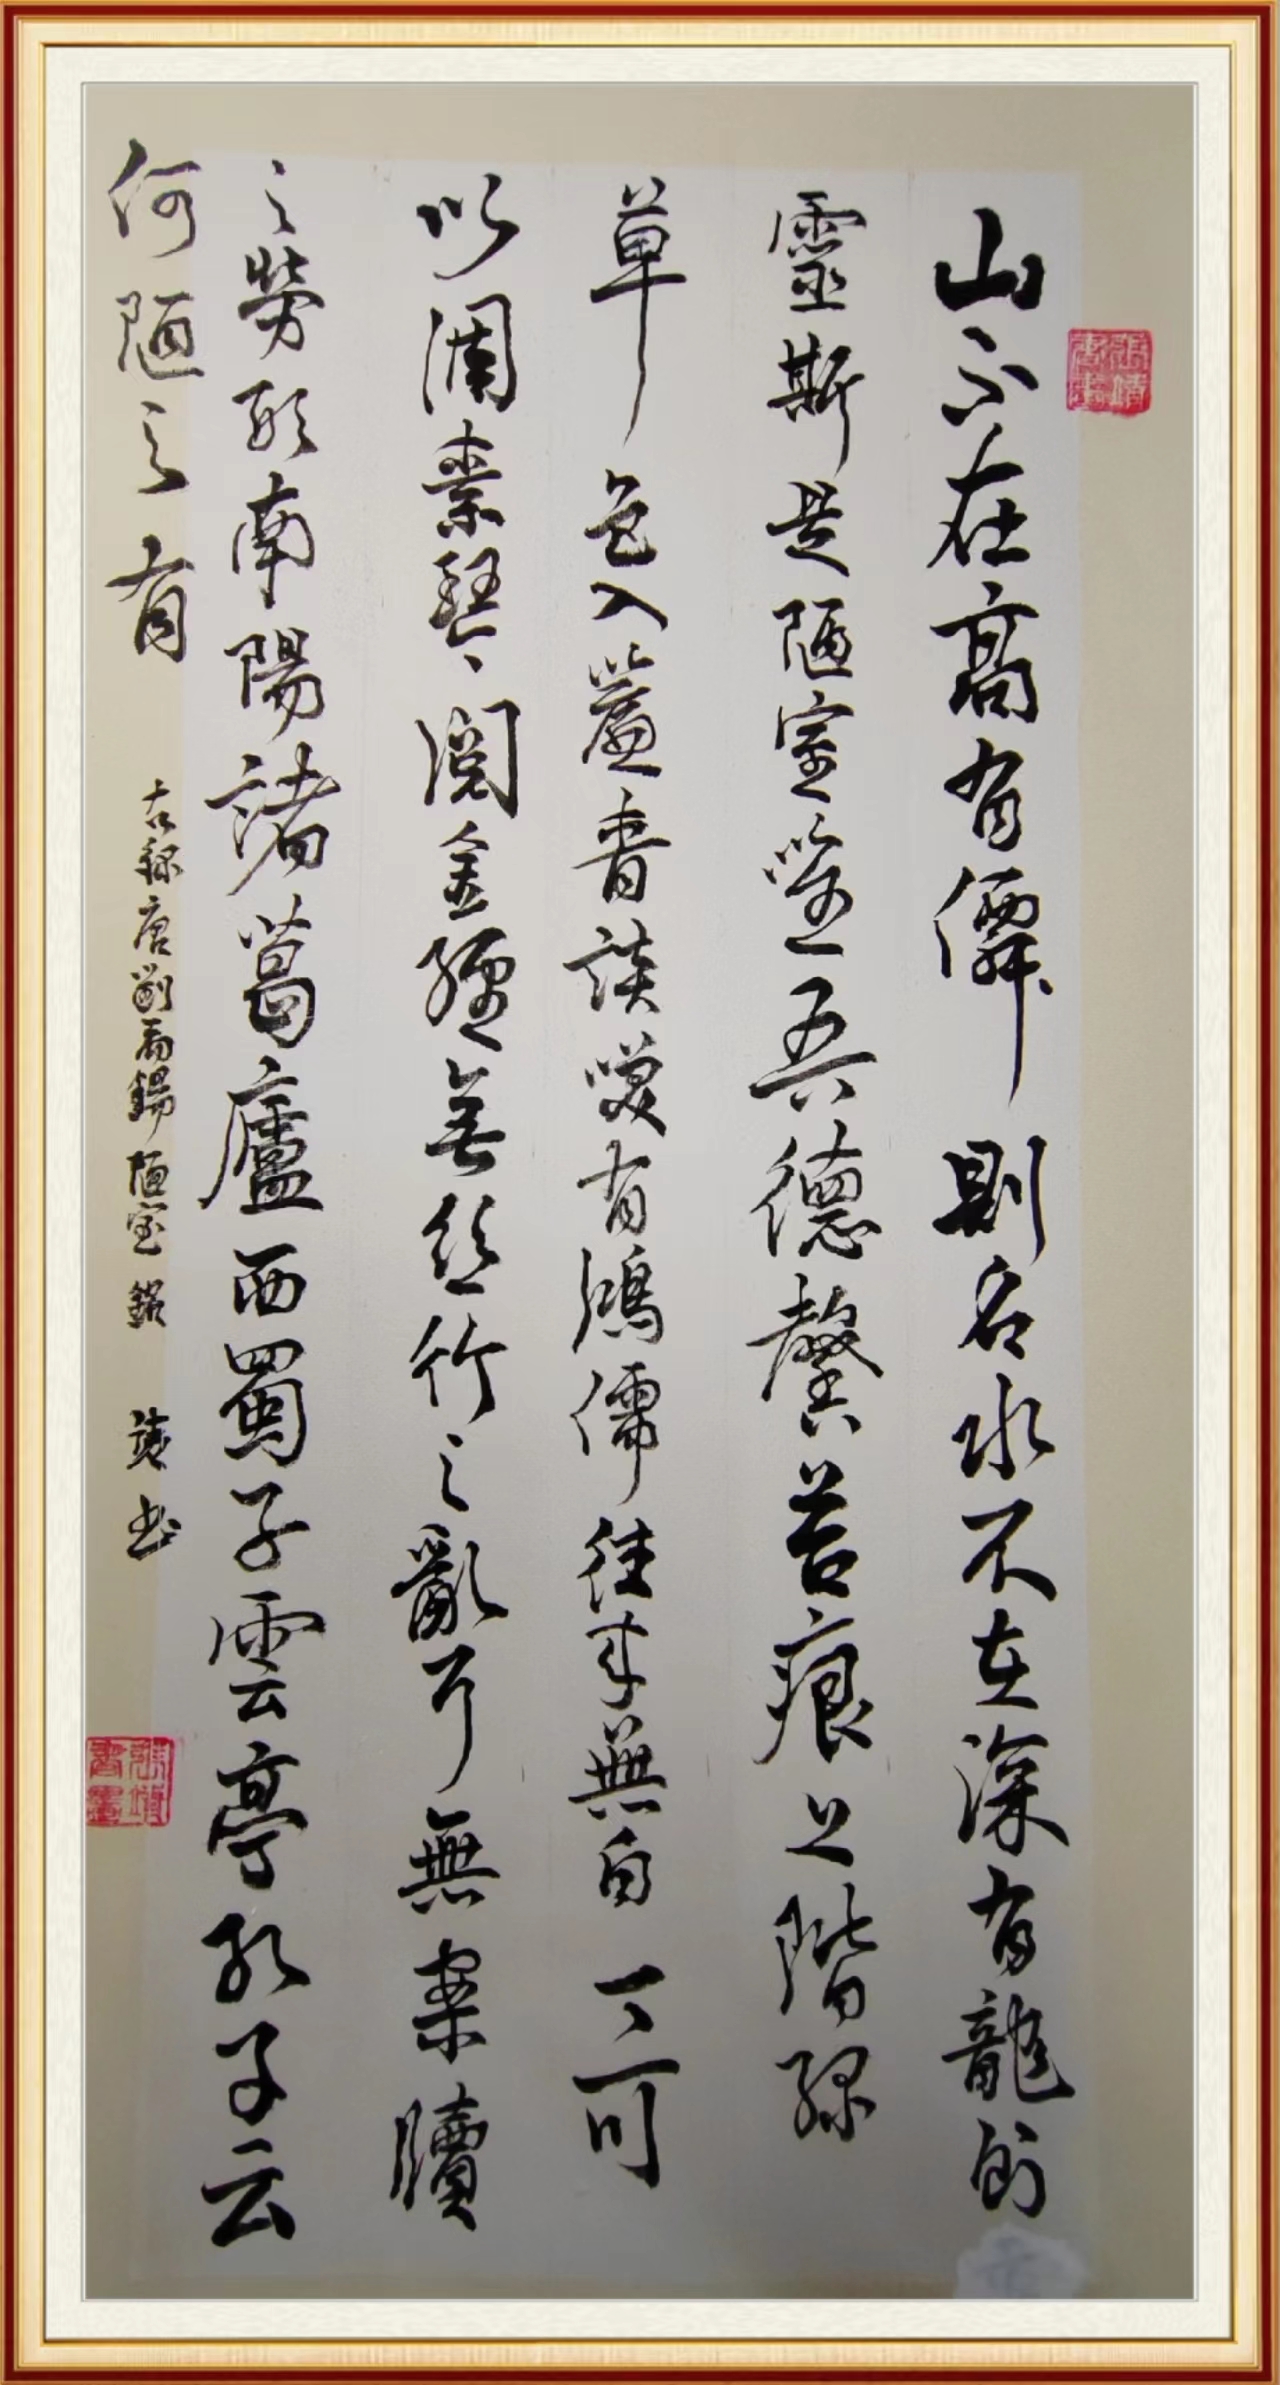 山不在高有僊則名水不在深有龍則
靈斯是陋室唯吾德馨苔痕上階綠
草色入簾青談笑有鴻儒往來無白丁可
以調素琴閱金經無絲竹之亂耳無案牘
之勞形南陽諸葛廬西蜀子雲亭孔子云
何陋之有
唐劉禹錫陋室銘 書